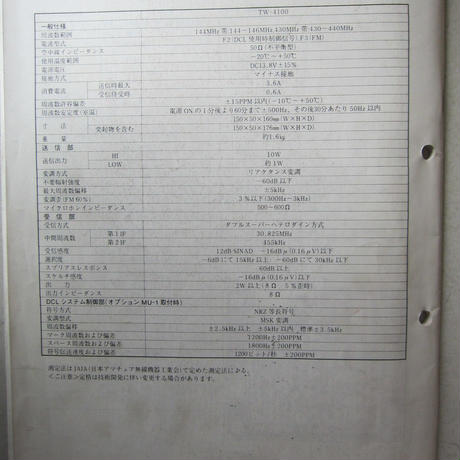 TW-4100
一般仕様
周波数範囲 144MHz帯 144〜146MHz 430MHz帯 430〜440MHz
電波型式 F2(DCL使用時制御信号) F3(FM)
空中線インピーダンス 50Ω(不平衡型)
使用温度範囲 −20℃〜+50℃
電源電圧 DC13.8V±15%
接地方式 マイナス接地
消費電流 送信時最大 3.6A
受信待受時 0.6A
周波数許容偏差 ±15PPM以内(−10℃〜+50℃)
周波数安定度(室温) 電源ONの1分後より60分まで±500Hz、その後30分あたり50Hz以内
寸法 150×50×160㎜(W×H×D)
突起物を含む 150×50×176㎜(W×H×D)
重量 約1.6kg
送信部
送信出力 HI 10W
LOW 約1W
変調方式 リアクタンス変調
不要輻射強度 −60dB以下
最大周波数偏移 ±5kHz
変調歪(FM60%) 3%以下(300Hz〜3kHz)
マイクロホンインピーダンス 500〜600Ω
受信部
受信方式 ダブルスーパーヘテロダイン方式
中間周波数 第1IF 30.825MHz
第2IF 455kHz
受信感度 12dB SINAD −16dBμ(0.16μV)以下
選択度 −6dBにて15kHz以上 −60dBにて30kHz以下
スプリアスレスポンス 60dB以上
スケルチ感度 −16dBμ(0.16μV)以下
出力 2W以上(8Ω 5%歪時)
出力インピーダンス 8Ω
DCLシステム制御部(オプションMU-1取付時)
符号方式 NRZ等長符号
変調型式 MSK変調
周波数偏移 ±2.5kHz以上 ±5kHz以内 標準±3.5kHz
マーク周波数および偏差 1200Hz±200PPM
スペース周波数および偏差 1800Hz±200PPM
符号伝送速度および偏差 1200ビット/秒 ±200PPM
測定法はJAIA(日本アマチュア無線機器工業会)で定めた測定法による。
<ご注意>定格は技術開発に伴い変更する場合があります。